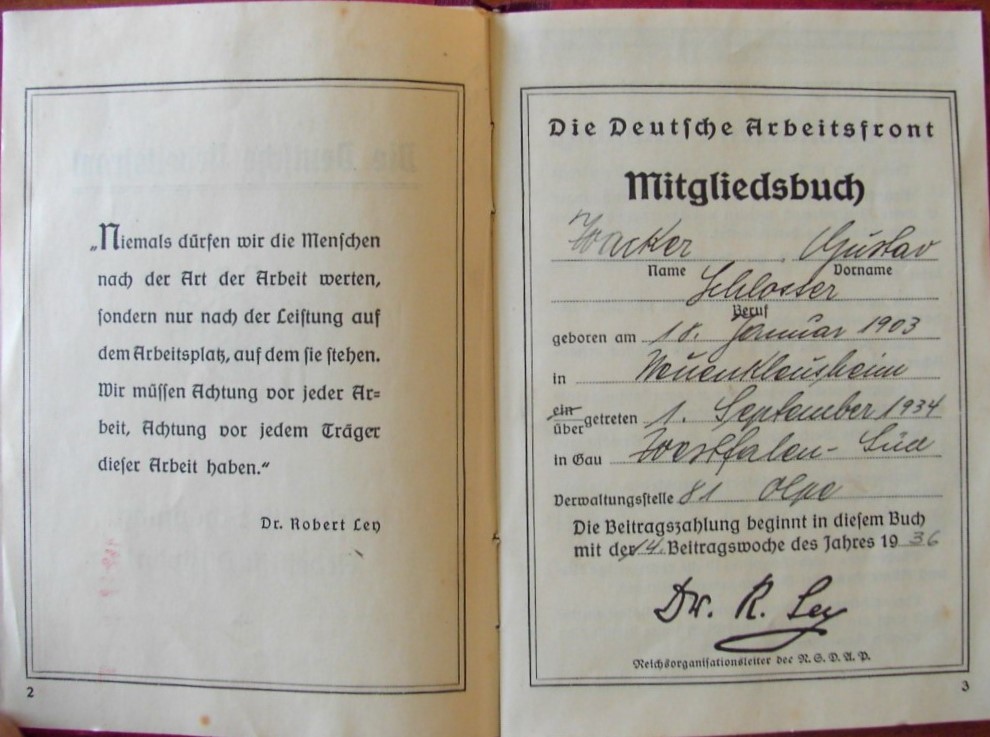 „Niemals dürfen wir die Menschen
nach der Art der Arbeit werten,
sondern nur nach der Leistung auf
dem Arbeitsplatz, auf dem sie stehen.
Wir müssen Achtung vor jeder Ar=
beit, Achtung vor jedem Träger
dieser Arbeit haben.“
Dr. Robert Ley
2
Die Deutsche Arbeitsfront
Mitgliedsbuch
Wacker Gustav
Name Vorname
Schlosser
Beruf
geboren am 18. Januar 1903
in Neuenkleusheim
ein
übergetreten 1. September 1934
in Gau Westfalen-Süd
Verwaltungsstelle 81 Olpe
Die Beitragszahlung beginnt in diesem Buch
mit der 14. Beitragswoche des Jahres 1936
Dr. R. Ley
Reichsorganisationsleiter der N.S.D.A.P.
3